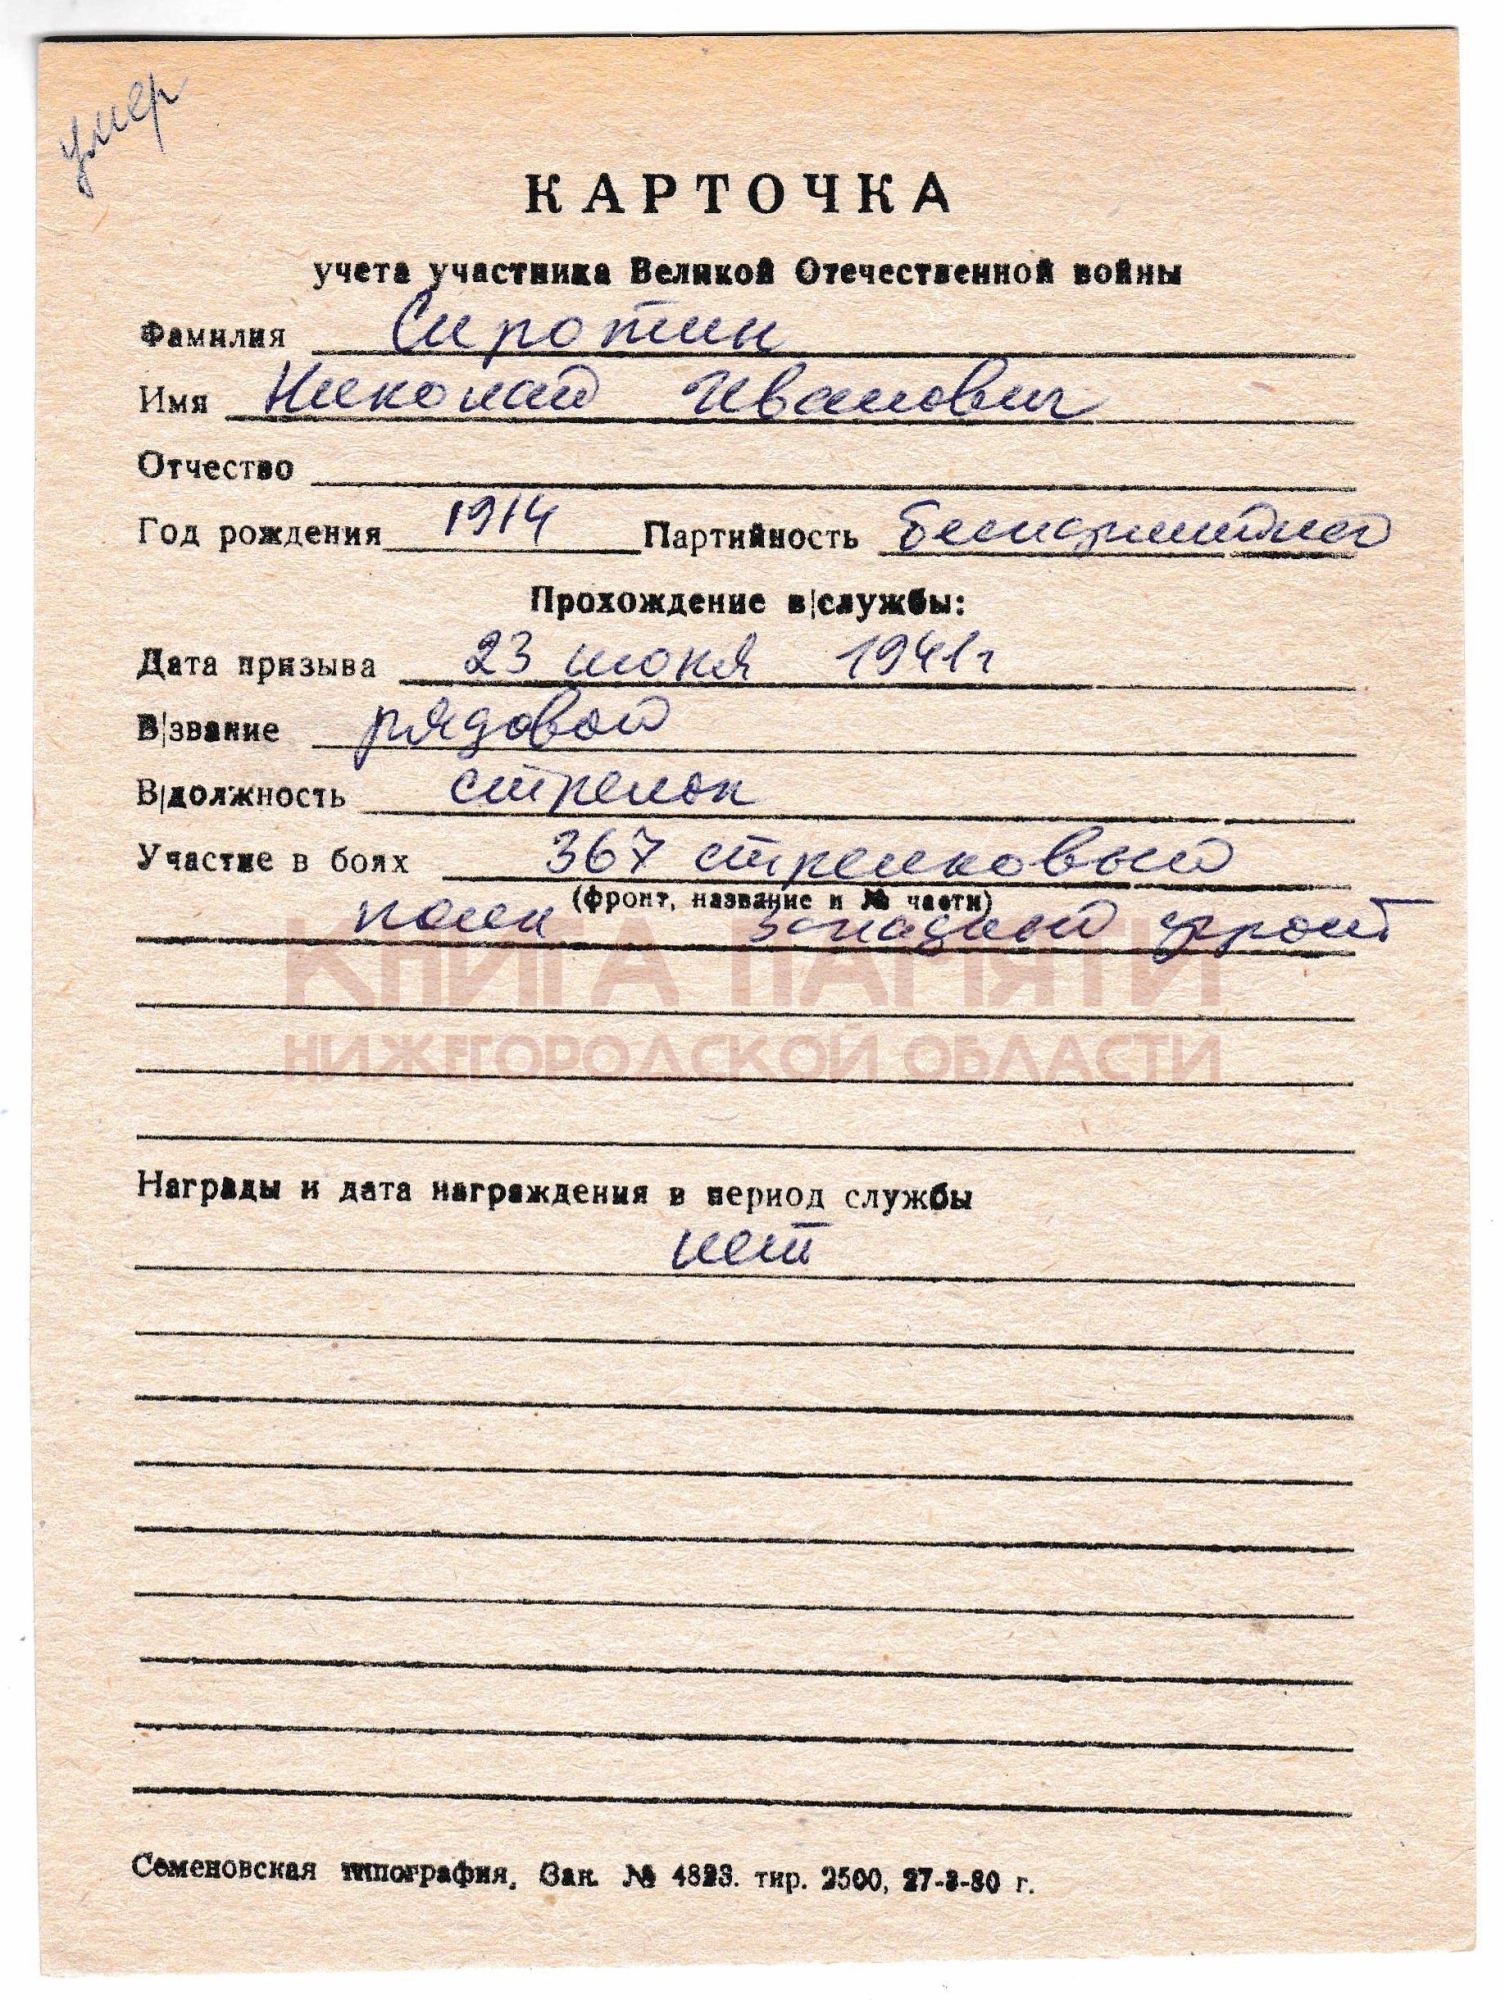 умер
КАРТОЧКА
учета участника Великой Отечественной войны
Фамилия Сиротин
Имя Николай Иванович
Отчество
Год рождения 1914 Партийность беспартийный
Прохождение в|службы:
Дата призыва 23 июня 1941г
В|звание рядовой
В|должность стрелок
Участие в боях 367 стрелковый
(фронт, название и № части)
полк западный фронт
КНИГА ПАМЯТИ
НИЖЕГОРОДСКОЙ ОБЛАСТИ
Награды и дата награждения в период службы
нет
Семеновская типография. Зак. № 4823. тир. 2500, 27-3-80 г.